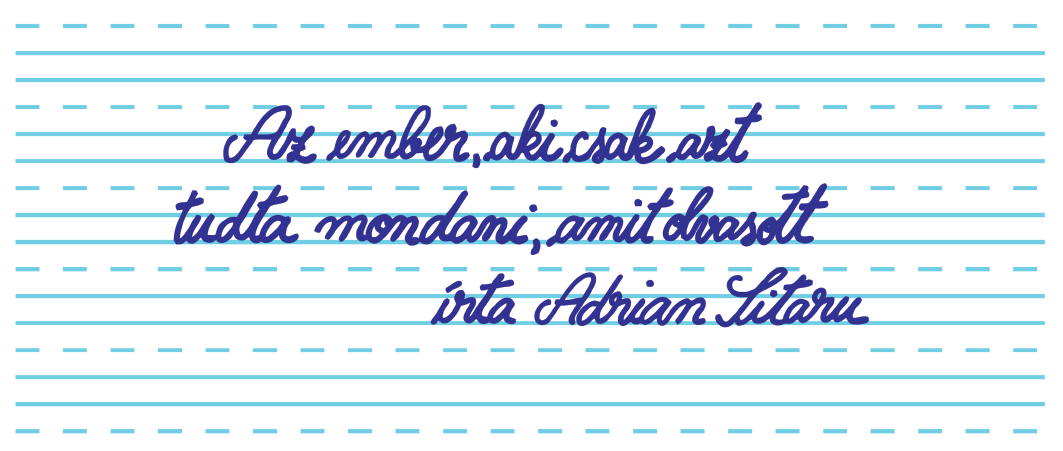 Az ember, aki csak azt
tudta mondani, amit olvasott
írta Adrian Sitaru